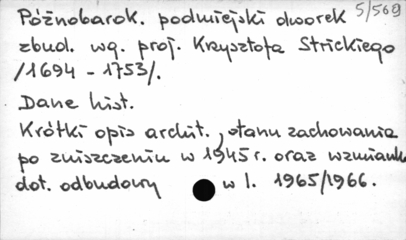 5/569
Późnobarok. podmiejski dworek
zbud. wg. proj. Krzysztofa Strickiego
/1694 - 1753/.
Dane hist.
Krótki opis archit., stanu zachowania
po zniszczeniu w 1945 r. oraz wzmianka
dot. odbudowy w l. 1965/1966.